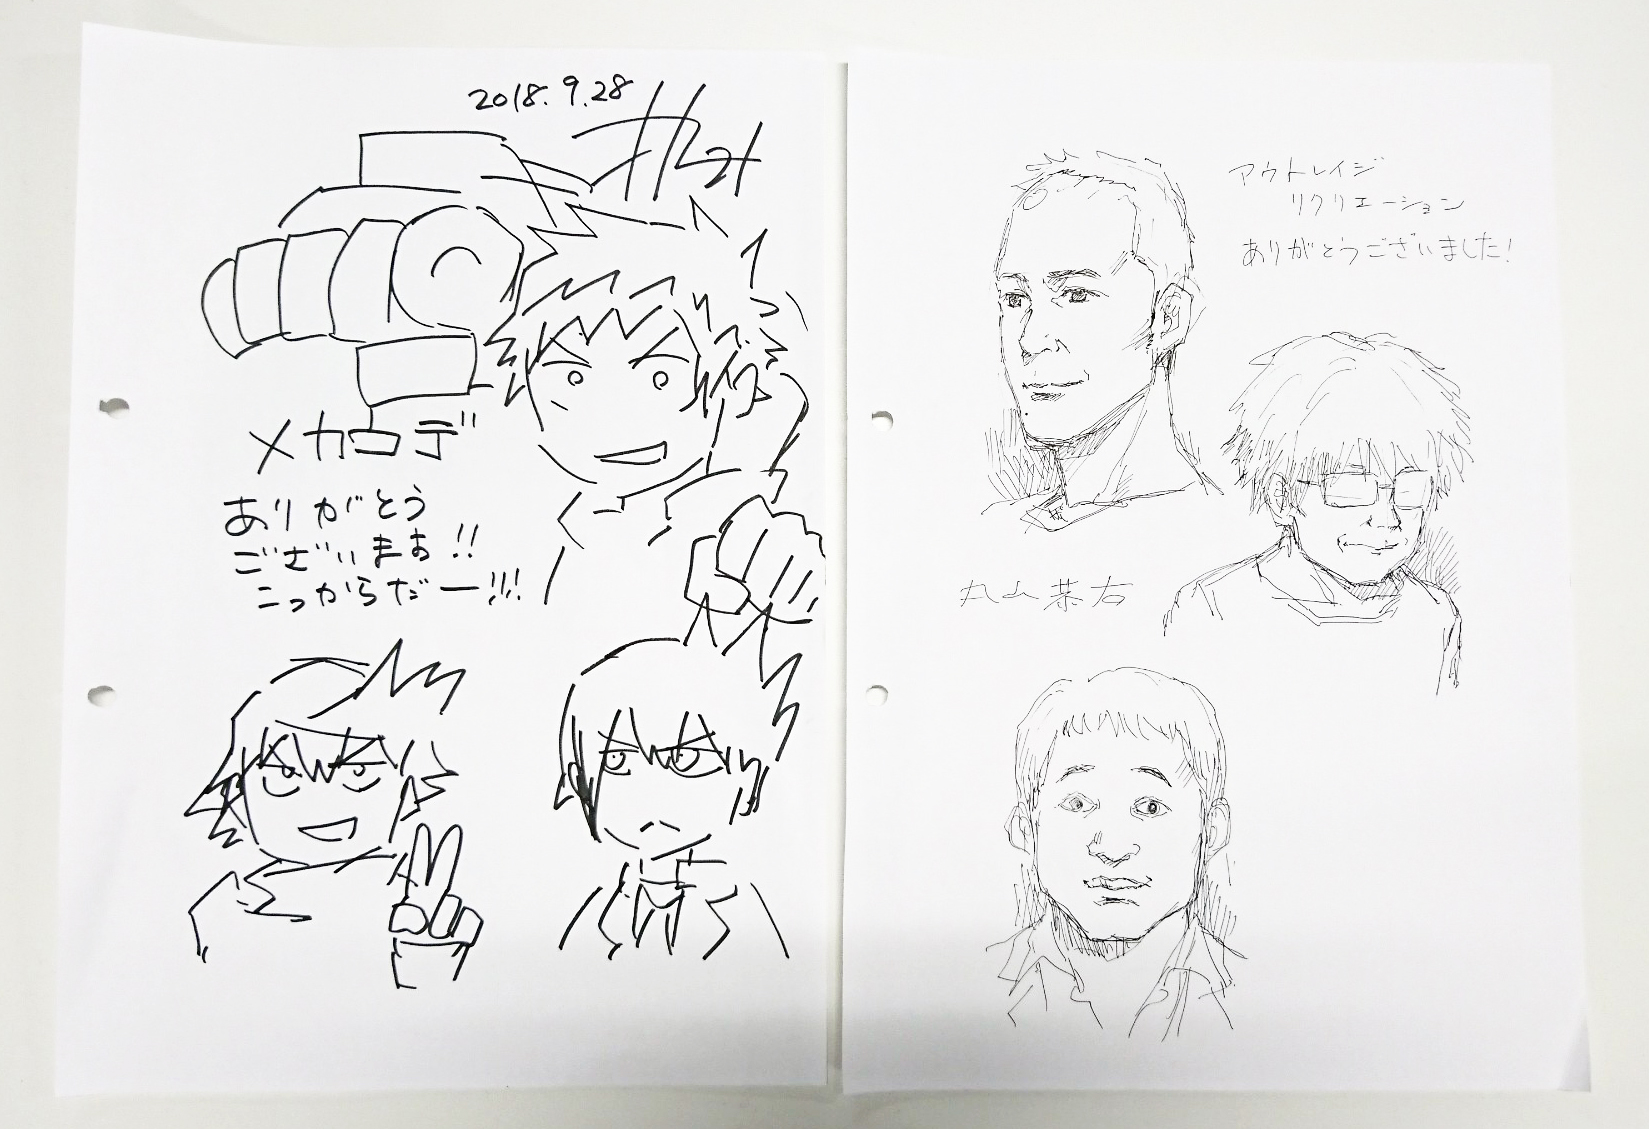 2018.9.28
メカウデ
ありがとう
ございます!!
こっからだー!!!
アウトレイジ
リクリエーション
ありがとうございました!
丸山恭右